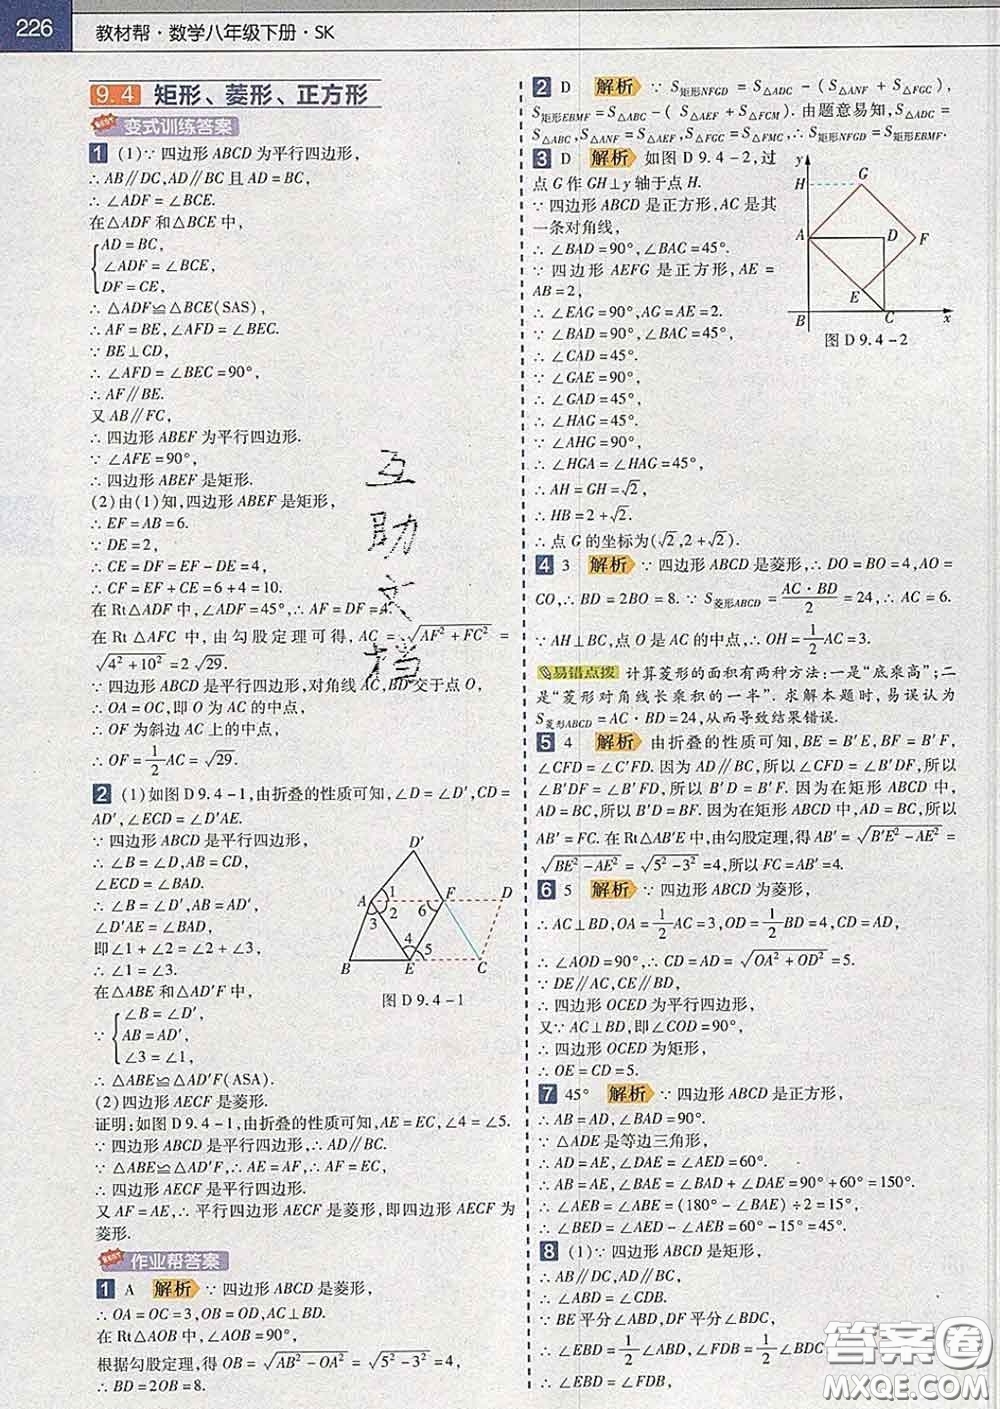 226
教材帮·数学八年级下册·SK
9.4 矩形、菱形、正方形
变式训练答案
1 (1)∵ 四边形 ABCD 为平行四边形,
∴ AB∥DC,AD∥BC 且 AD=BC,
∴ ∠ADF=∠BCE.
在△ADF 和△BCE 中,
AD=BC,
∠ADF=∠BCE,
DF=CE,
∴ △ADF≌△BCE(SAS).
∴ AF=BE,∠AFD=∠BEC.
∵ BE⊥CD,
∴ ∠AFD=∠BEC=90°,
∴ AF∥BE.
又 AB∥FC,
∴ 四边形 ABEF 为平行四边形.
∵ ∠AFE=90°,
∴ 四边形 ABEF 是矩形.
(2)由(1)知,四边形 ABEF 是矩形,
∴ EF=AB=6.
∵ DE=2,
∴ CE=DF=EF-DE=4,
∴ CF=EF+CE=6+4=10.
在 Rt△ADF 中,∠ADF=45°,∴ AF=DF=4.
在 Rt△AFC 中,由勾股定理可得,AC=√(AF²+FC²)=
√(4²+10²)=2√29.
∵ 四边形 ABCD 是平行四边形,对角线 AC,BD 交于点 O,
∴ OA=OC,即 O 为 AC 的中点,
∴ OF 为斜边 AC 上的中线,
∴ OF=1/2 AC=√29.
2 (1)如图 D9.4-1,由折叠的性质可知,∠D=∠D′,CD=
AD′,∠ECD=∠D′AE.
∵ 四边形 ABCD 是平行四边形,
∴ ∠B=∠D,AB=CD,
∠ECD=∠BAD.
∴ ∠B=∠D′,AB=AD′,
∠D′AE=∠BAD,
即∠1+∠2=∠2+∠3,
∴ ∠1=∠3.
在△ABE 和△AD′F 中,
∠B=∠D′,
∵ AB=AD′,
∠3=∠1,
∴ △ABE≌△AD′F(ASA).
D′
A 1 2 3 F D
6
4 5
B E C
图 D9.4-1
(2)四边形 AECF 是菱形.
证明:如图 D9.4-1,由折叠的性质可知,AE=EC,∠4=∠5.
∵ 四边形 ABCD 是平行四边形,∴ AD∥BC.
∵ △ABE≌△AD′F,∴ AE=AF,∴ AF=EC,
∴ 四边形 AECF 是平行四边形.
又 AF=AE,∴ 平行四边形 AECF 是菱形,即四边形 AECF 是
菱形.
作业帮答案
1 A 解析 ∵ 四边形 ABCD 是菱形,
∴ OA=OC=3,OB=OD,AC⊥BD.
在 Rt△AOB 中,∠AOB=90°,
根据勾股定理,得 OB=√(AB²-OA²)=√(5²-3²)=4,
∴ BD=2OB=8.
2 D 解析 ∵ S矩形NFGD=S△ADC-(S△ANF+S△FGC),
S矩形EBMF=S△ABC-(S△AEF+S△FCM).由题意易知,S△ADC=
S△ABC,S△ANF=S△AEF,S△FGC=S△FMC,∴ S矩形NFGD=S矩形EBMF.
3 D 解析 如图 D9.4-2,过
点 G 作 GH⊥y 轴于点 H.
∵ 四边形 ABCD 是正方形,AC 是其
一条对角线,
∴ ∠BAD=90°,∠BAC=45°.
∵ 四边形 AEFG 是正方形,AE=
AB=2,
∴ ∠EAG=90°,AG=AE=2.
∵ ∠BAD=90°,∠BAC=45°,
∴ ∠CAD=45°.
∵ ∠GAE=90°,
∴ ∠GAD=45°,
∴ ∠HAG=45°.
∵ ∠AHG=90°,
∴ ∠HGA=∠HAG=45°,
∴ AH=GH=√2,
∴ HB=2+√2.
∴ 点 G 的坐标为(√2,2+√2).
y
H G
A D F
E
B C x
图 D9.4-2
4 3 解析 ∵ 四边形 ABCD 是菱形,∴ DO=BO=4,AO=
CO,∴ BD=2BO=8.∵ S菱形ABCD=AC·BD/2=24,∴ AC=6.
∵ AH⊥BC,点 O 是 AC 的中点,∴ OH=1/2 AC=3.
易错点拨 计算菱形的面积有两种方法:一是“底乘高”;二
是“菱形对角线长乘积的一半”.求解本题时,易误认为
S菱形ABCD=AC·BD=24,从而导致结果错误.
5 4 解析 由折叠的性质可知,BE=B′E,BF=B′F,
∠CFD=∠C′FD.因为 AD∥BC,所以∠CFD=∠B′DF,所以
∠B′FD=∠B′DF,所以 B′D=B′F.因为在矩形 ABCD 中,
AD=BC,所以 B′D=BF.因为在矩形 ABCD 中,AD=BC,所以
AB′=FC.在 Rt△AB′E 中,由勾股定理,得 AB′=√(B′E²-AE²)=
√(BE²-AE²)=√(5²-3²)=4,所以 FC=AB′=4.
6 5 解析 ∵ 四边形 ABCD 为菱形,
∴ AC⊥BD,OA=1/2 AC=3,OD=1/2 BD=4,CD=AD,
∴ ∠AOD=90°,∴ CD=AD=√(OA²+OD²)=5.
∵ DE∥AC,CE∥BD,
∴ 四边形 OCED 为平行四边形,
又∵ AC⊥BD,即∠COD=90°,
∴ 四边形 OCED 为矩形,
∴ OE=CD=5.
7 45° 解析 ∵ 四边形 ABCD 是正方形,
∴ AB=AD,∠BAD=90°.
∵ △ADE 是等边三角形,
∴ AD=AE,∠DAE=∠AED=60°.
∴ AB=AE,∠BAE=∠BAD+∠DAE=90°+60°=150°.
∴ ∠AEB=∠ABE=(180°-∠BAE)÷2=15°,
∴ ∠BED=∠AED-∠AEB=60°-15°=45°.
8 (1)∵ 四边形 ABCD 是矩形,
∴ AB∥DC,AD∥BC,
∴ ∠ABD=∠CDB.
∵ BE 平分∠ABD,DF 平分∠BDC,
∴ ∠EBD=1/2∠ABD,∠FDB=1/2∠BDC
∴ ∠EBD=∠FDB,
互
助
文
档
答案圈
MXQE.COM